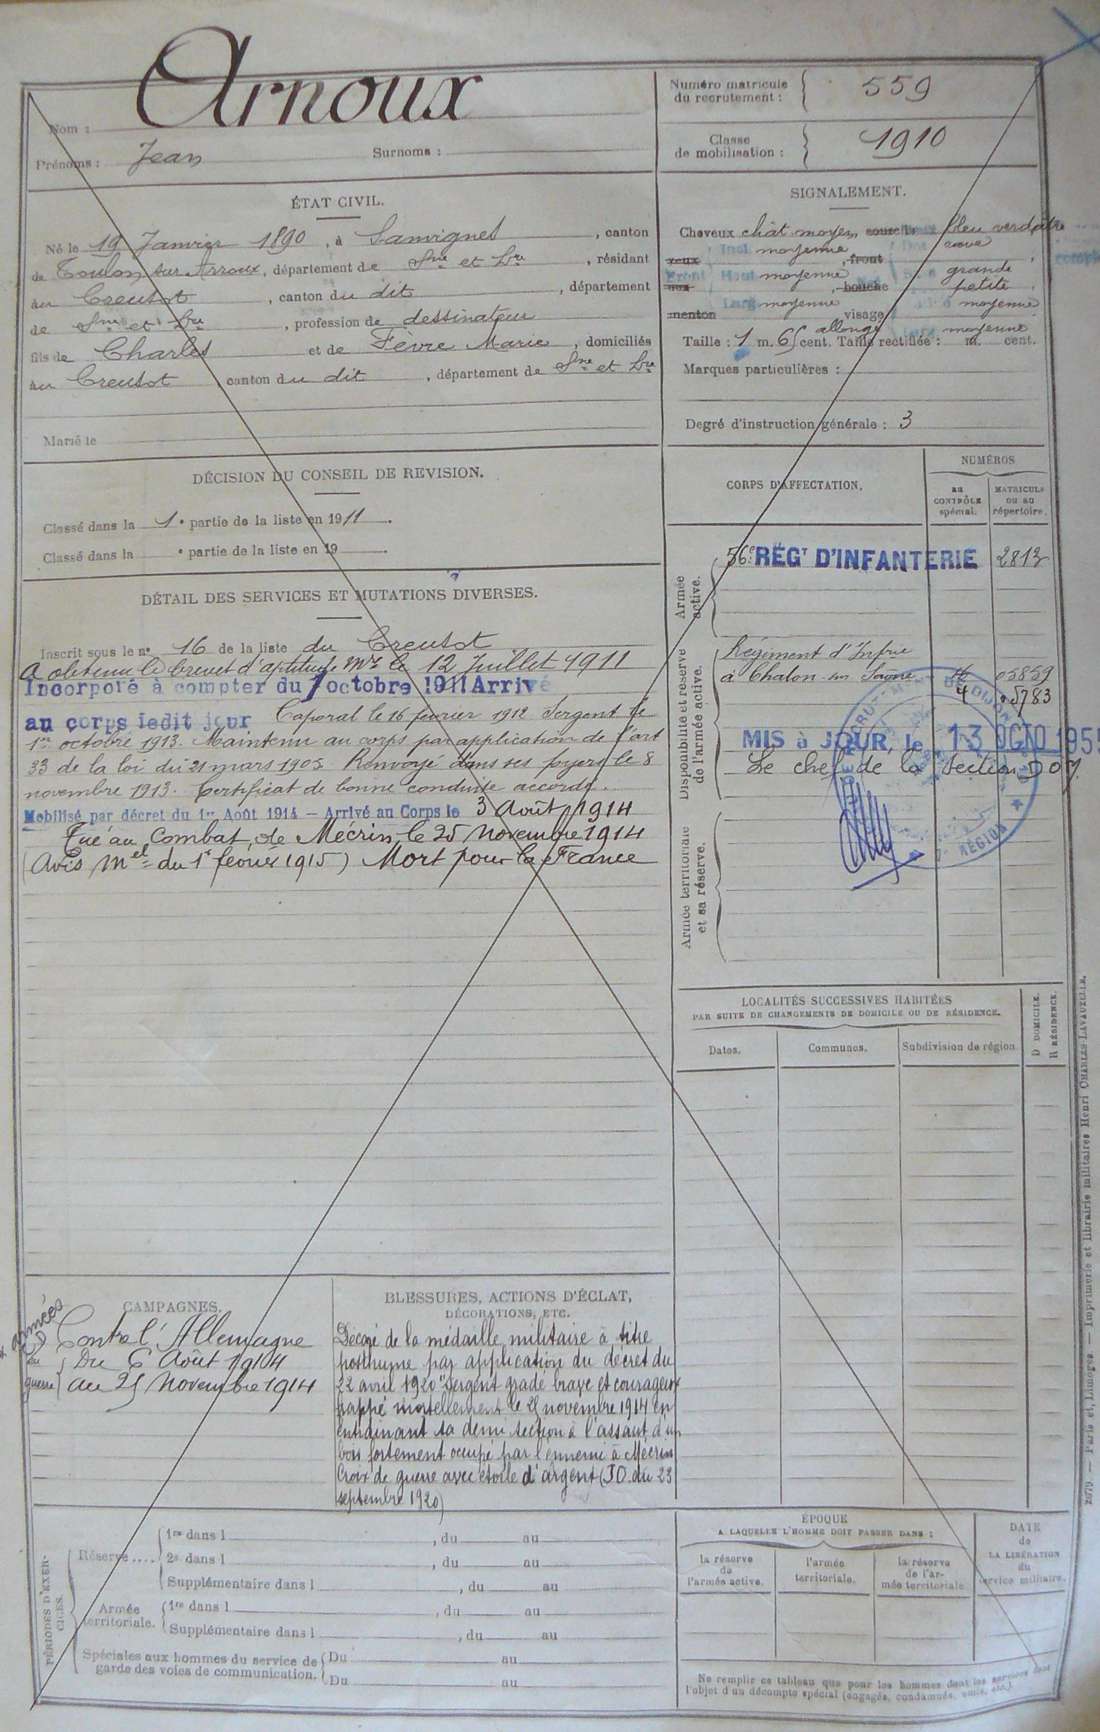 Nom : Arnoux
Prénoms : Jean Surnoms :
Numéro matricule du recrutement : 559
Classe de mobilisation : 1910
ÉTAT CIVIL.
Né le 19 Janvier 1890, à Sanvignes, canton
de Toulon sur Arroux, département de Sne et Lre, résidant
au Creusot, canton du dit, département
de Sne et Lre, profession de dessinateur
fils de Charles et de Fèvre Marie, domiciliés
au Creusot canton du dit, département de Sne et Lre
Marié le
SIGNALEMENT.
Cheveux chât moyen, sourcils bleu verdâtre
yeux Incl. moyenne, front Dos cave
Front Haut moyenne grande
nez bouche petite
Larg moyenne moyenne
menton visage allongé moyenne
Taille : 1 m. 65 cent. Taille rectifiée : m. cent.
Marques particulières :
Degré d'instruction générale : 3
DÉCISION DU CONSEIL DE REVISION.
Classé dans la 1e partie de la liste en 1911.
Classé dans la e partie de la liste en 19 .
DÉTAIL DES SERVICES ET MUTATIONS DIVERSES.
Inscrit sous le no 16 de la liste du Creusot
A obtenu le brevet d'aptitude Mre le 12 Juillet 1911
Incorporé à compter du 1 octobre 1911 Arrivé
au corps ledit jour Caporal le 16 février 1912 Sergent le
1er octobre 1913. Maintenu au corps par application de l'art
33 de la loi du 21 mars 1905 Renvoyé dans ses foyers le 8
novembre 1913. Certificat de bonne conduite accordé.
Mobilisé par décret du 1er Août 1914 – Arrivé au Corps le 3 Août 1914
Tué au Combat de Mécrin le 25 novembre 1914
(Avis Mel du 1r février 1915) Mort pour la France
CORPS D'AFFECTATION.
NUMÉROS
au CONTRÔLE spécial.
MATRICULE ou au répertoire.
Armée active.
56e RÉGT D'INFANTERIE 2813
Disponibilité et réserve de l'armée active.
Régiment d'Infrie
à Chalon sur Saône 05859
4 5783
MIS à JOUR, le 13 OCTO 1955
Le chef de la Section
DIJON
RÉGION
Armée territoriale et sa réserve.
LOCALITÉS SUCCESSIVES HABITÉES
PAR SUITE DE CHANGEMENTS DE DOMICILE OU DE RÉSIDENCE.
Dates.
Communes.
Subdivision de région.
D DOMICILE.
R RÉSIDENCE.
CAMPAGNES.
Contre l'Allemagne
Du 6 Août 1914
au 25 novembre 1914
armées
guerre
BLESSURES, ACTIONS D'ÉCLAT,
DÉCORATIONS, ETC.
Décoré de la médaille militaire à titre
posthume par application du décret du
22 avril 1920 "Sergent gradé brave et courageux
frappé mortellement le 25 novembre 1914 en
entrainant sa demi section à l'assaut d'un
bois fortement occupé par l'ennemi à Mécrin
Croix de guerre avec étoile d'argent (JO. du 23
septembre 1920)
PÉRIODES D'EXERCICES.
Réserve....
1re dans l , du au
2e dans l , du au
Supplémentaire dans l , du au
Armée territoriale.
1re dans l , du au
Supplémentaire dans l , du au
Spéciales aux hommes du service de garde des voies de communication.
Du au
Du au
ÉPOQUE
A LAQUELLE L'HOMME DOIT PASSER DANS :
la réserve de l'armée active.
l'armée territoriale.
la réserve de l'armée territoriale.
DATE de LA LIBÉRATION du service militaire.
Ne remplir ce tableau que pour les hommes dont les services sont
l'objet d'un décompte spécial (engagés, condamnés, omis, etc.).
2079. — Paris et Limoges. — Imprimerie et librairie militaires Henri CHARLES-LAVAUZELLE.